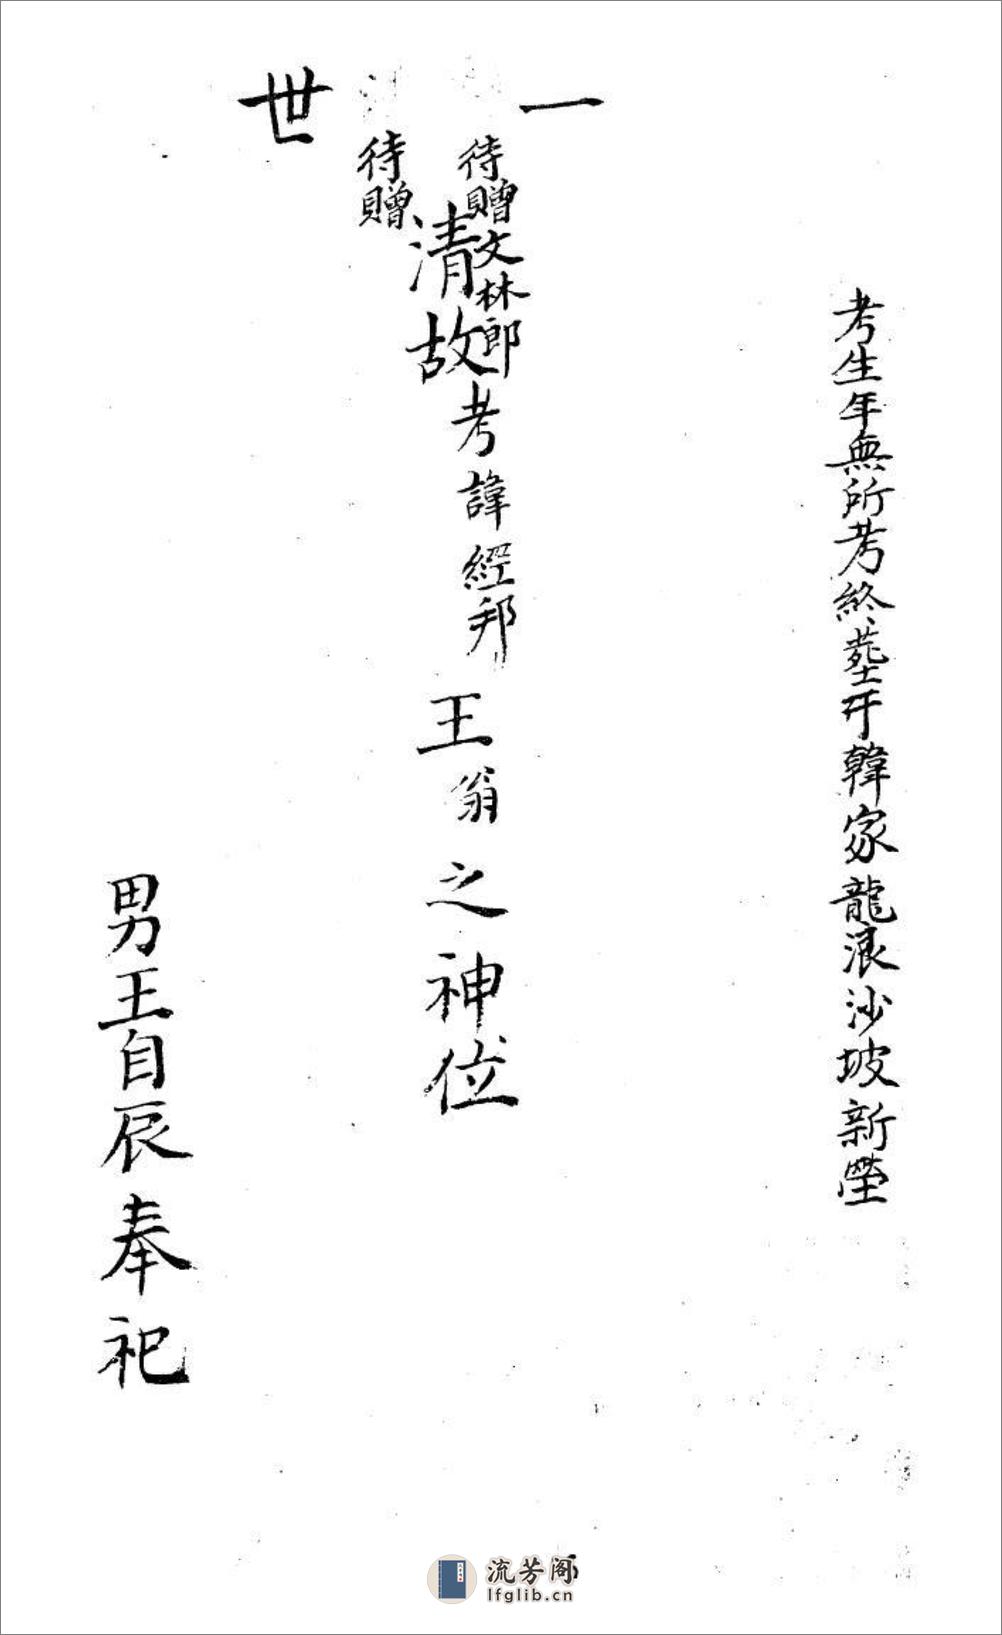 考生年無所考終塟于韓家龍浪沙坡新塋
一世
待贈文林郎
待贈
清故考諱經邦王翁之神位
男王自辰奉祀
流芳阁
lfglib.cn